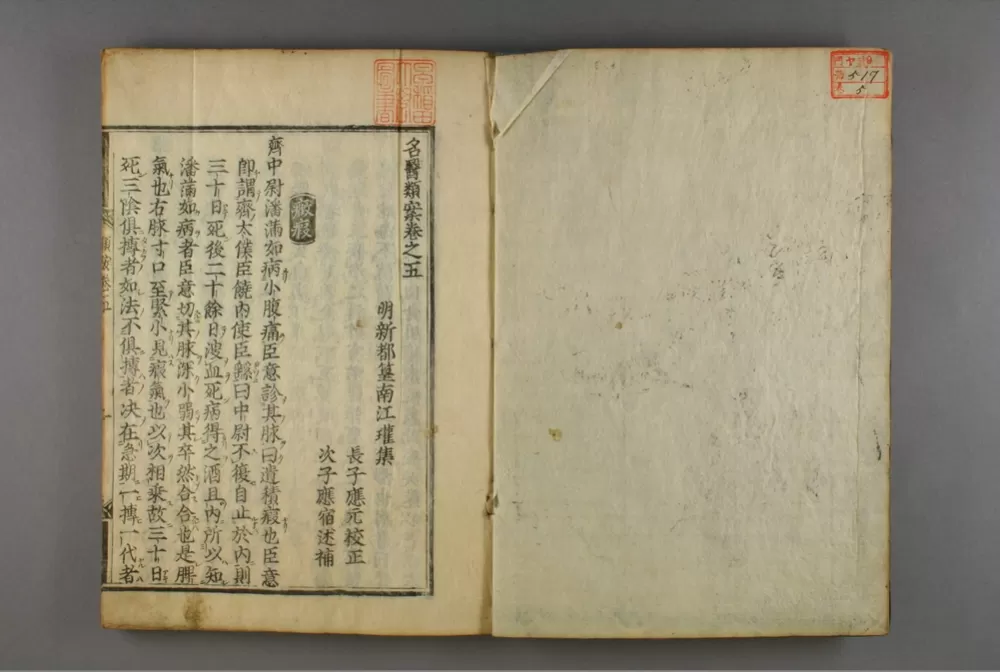 ヤ 9
517
5
名醫類案卷之五
明新都篁南江瓘集
長子應元校正
次子應宿述補
癥瘕
齊中尉潘滿如病小腹痛臣意診其脉曰遺積瘕也臣意
即謂齊太僕臣饒內使臣繇曰中尉不復自止於內則
三十日死後二十餘日溲血死病得之酒且內所以知
潘滿如病者臣意切其脉深小弱其卒然合合也是脾
氣也右脉寸口至緊小見瘕氣也以次相乘故三十日
死三陰俱摶者如法不俱摶者决在急期一摶一代者
類案卷五